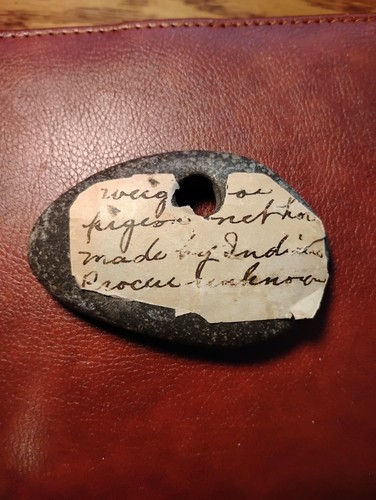 weig or
pigeon net
made by India
Procue unknow